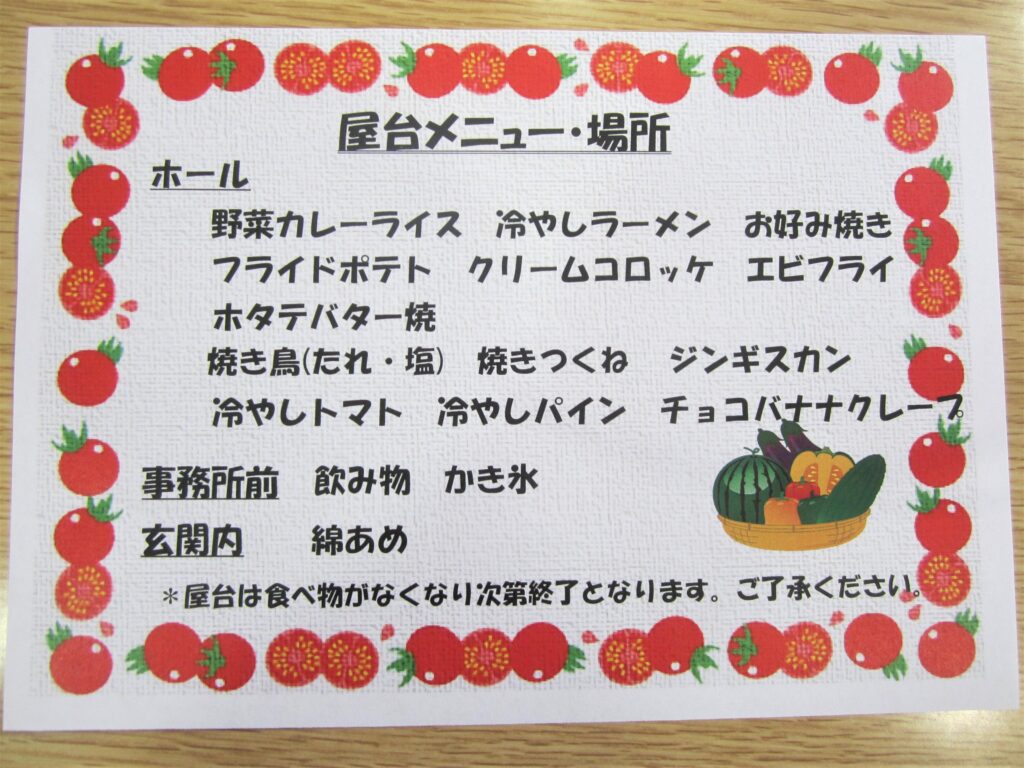 屋台メニュー・場所
ホール
野菜カレーライス　冷やしラーメン　お好み焼き
フライドポテト　クリームコロッケ　エビフライ
ホタテバター焼
焼き鳥(たれ・塩)　焼きつくね　ジンギスカン
冷やしトマト　冷やしパイン　チョコバナナクレープ
事務所前　飲み物　かき氷
玄関内　綿あめ
＊屋台は食べ物がなくなり次第終了となります。ご了承ください。